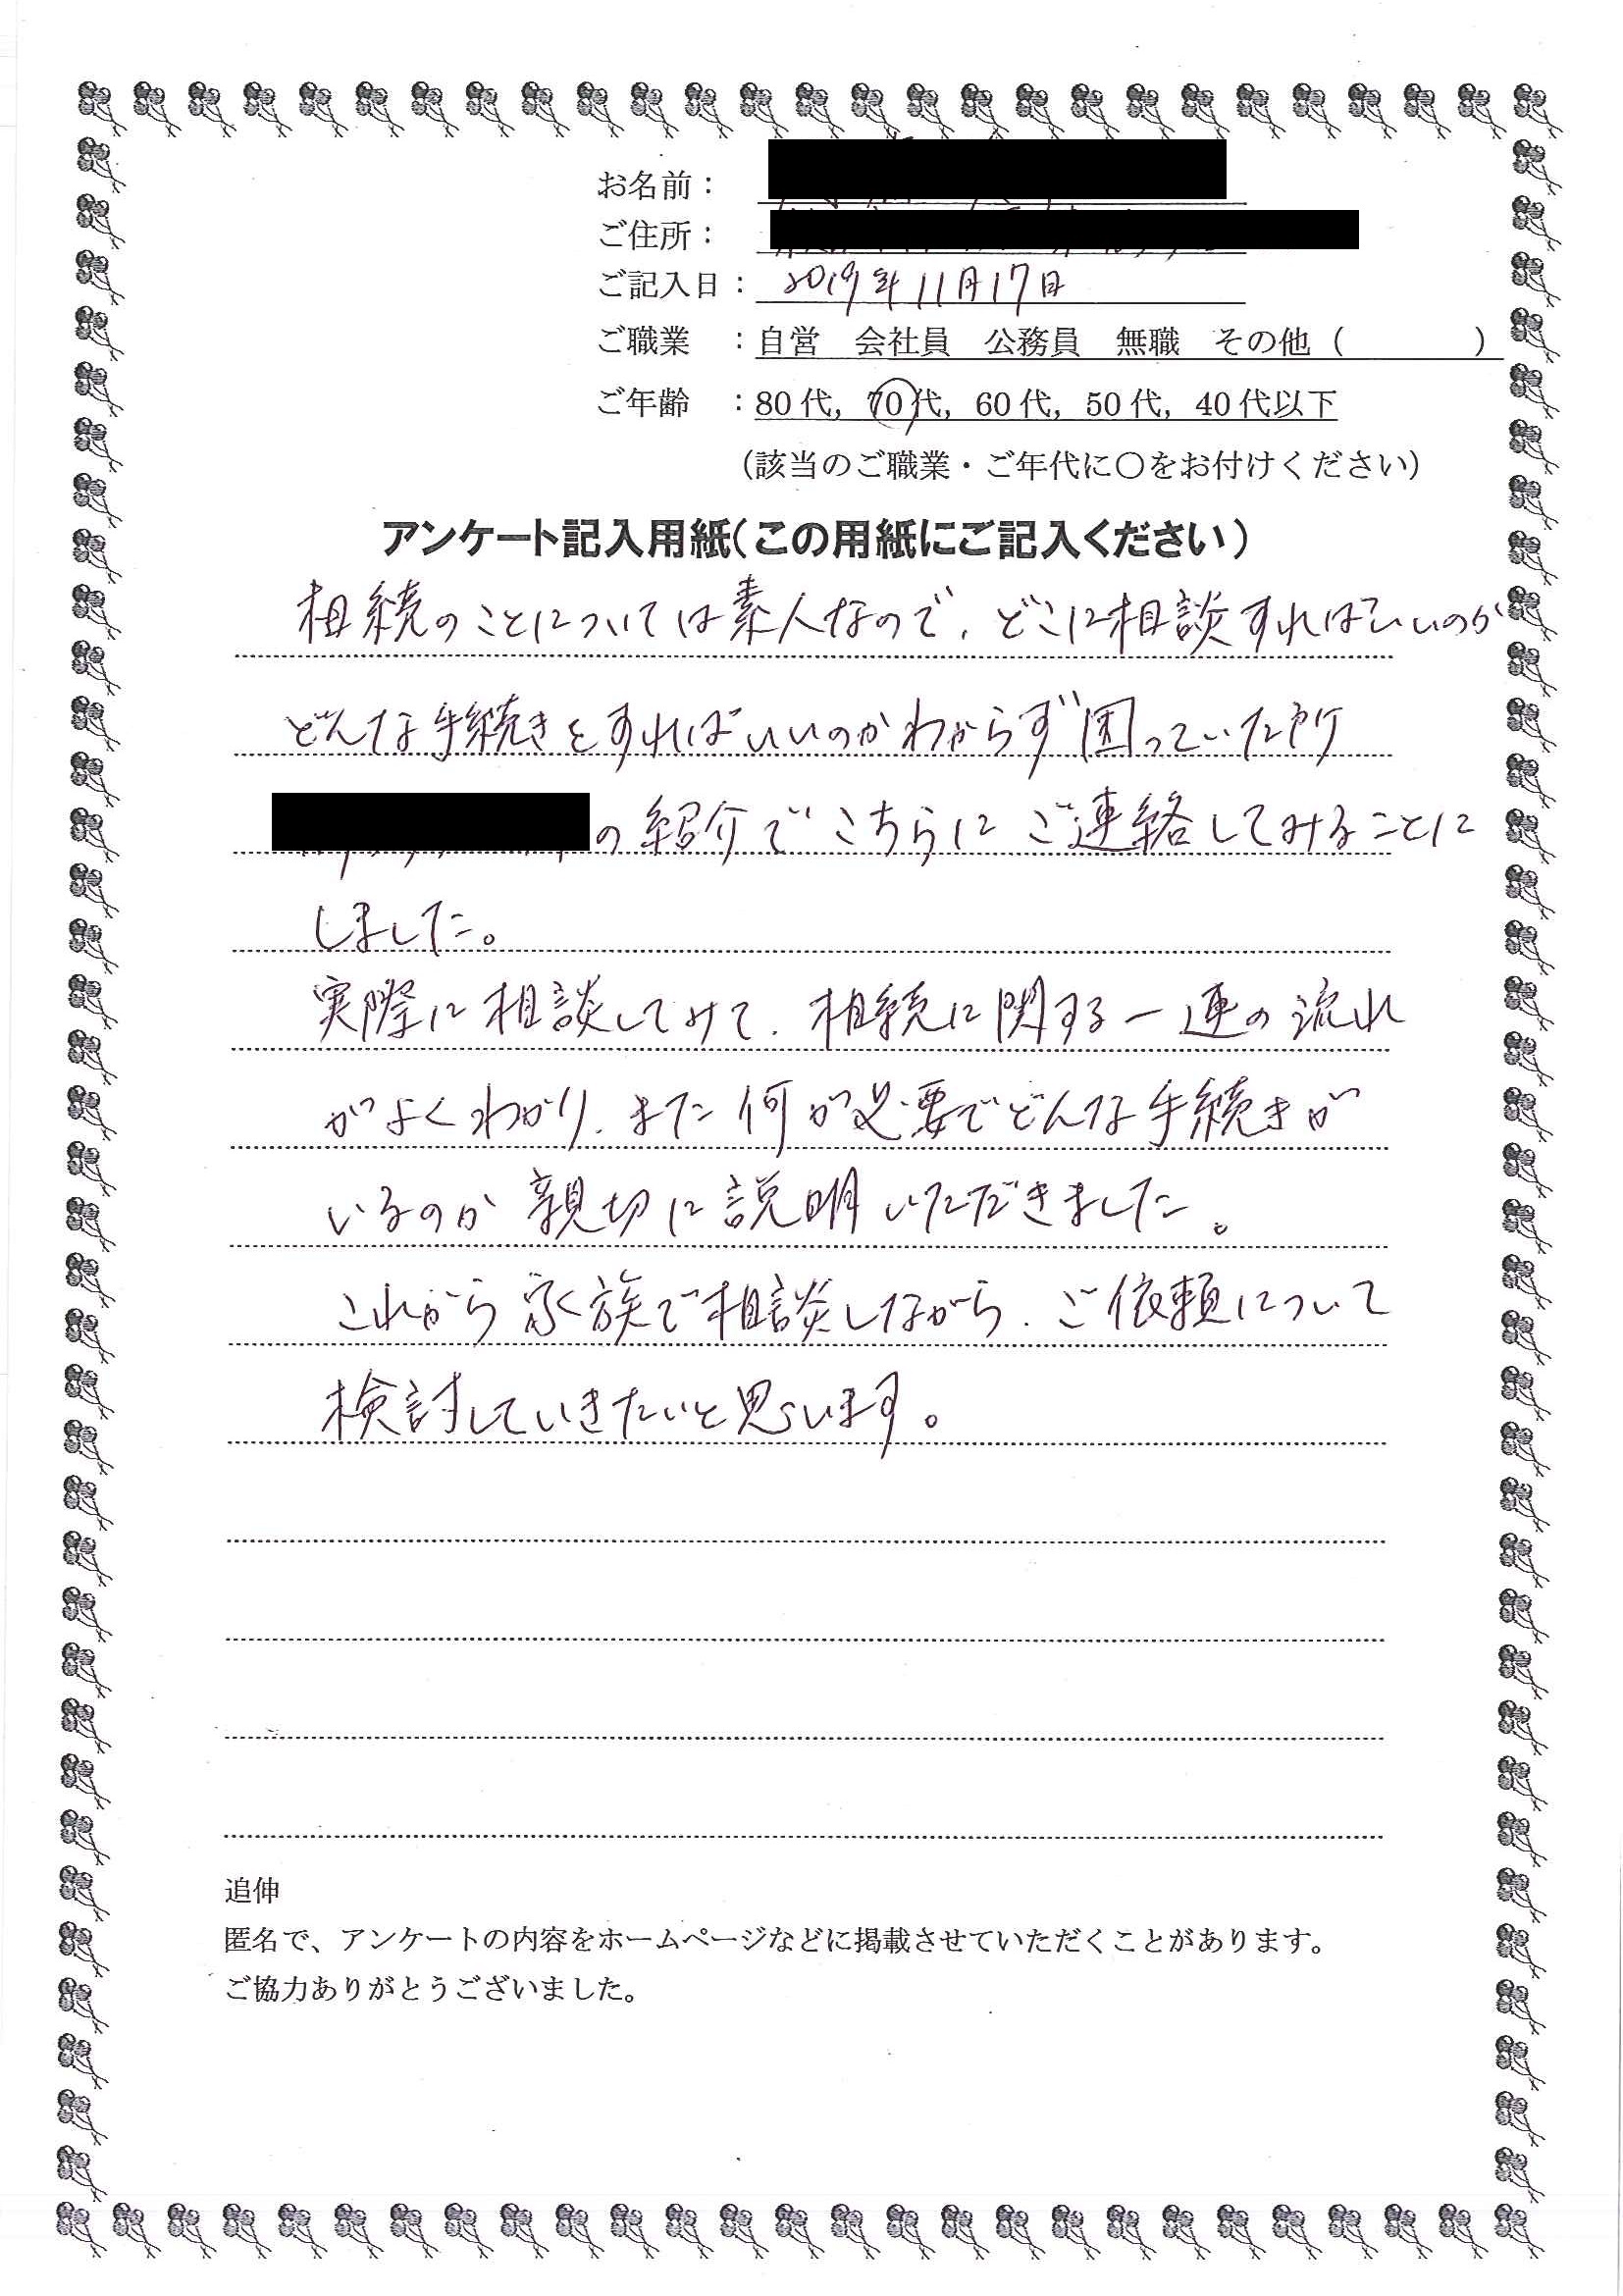 お名前：
ご住所：
ご記入日： 2019年11月17日
ご職業 ：自営 会社員 公務員 無職 その他（ ）
ご年齢 ：80代，70代，60代，50代，40代以下
（該当のご職業・ご年代に○をお付けください）
アンケート記入用紙（この用紙にご記入ください）
相続のことについては素人なので、どこに相談すればいいのか
どんな手続きをすればいいのかわからず困っていた所
の紹介でこちらにご連絡してみることに
しました。
実際に相談してみて、相続に関する一連の流れ
がよくわかり、また何が必要でどんな手続きが
いるのか親切に説明いただきました。
これから家族で相談しながら、ご依頼について
検討していきたいと思います。
追伸
匿名で、アンケートの内容をホームページなどに掲載させていただくことがあります。
ご協力ありがとうございました。